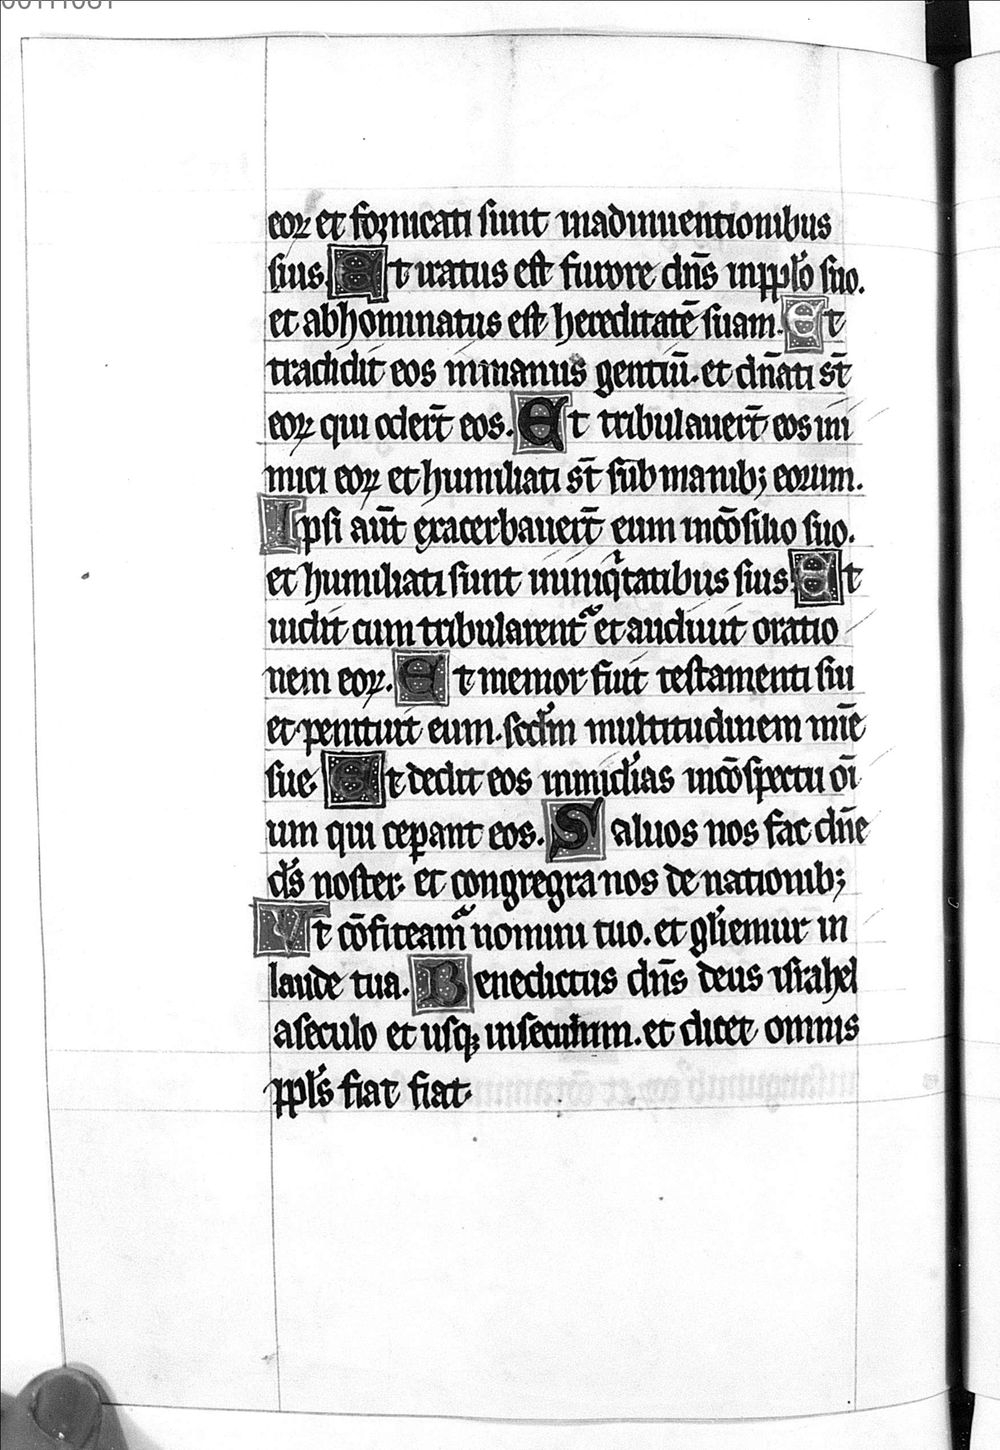 eoꝝ et fornicati sunt inadinuentionibus
suis. Et iratus est furore dn̄s inpplo suo.
et abhominatus est hereditatē suam. Et
tradidit eos inmanus gentiū. et dn̄ati st̄
eoꝝ qui odert̄ eos. Et tribulauert̄ eos ini
mici eoꝝ et humiliati st̄ sub manibꝫ eorum.
Ipsi aūt exacerbauert̄ eum incōsilio suo.
et humiliati sunt ininiqͥtatibus suis. Et
uidit cum tribularent᷑ et audiuit oratio
nem eoꝝ. Et memor fuit testamenti sui
et penituit eum. scd̄m multitudinem mīe
sue. Et dedit eos inmīcdias incōspectu oī
um qui ceꝑant eos. Saluos nos fac dn̄e
ds̄ noster. et congregra nos de nationibꝫ
Ut cōfiteam᷑ nomini tuo. et gl̄iemur in
laude tua. Benedictus dn̄s deus israhel
aseculo et usqꝫ inseculum. et dicet omnis
ppl̄s fiat fiat.